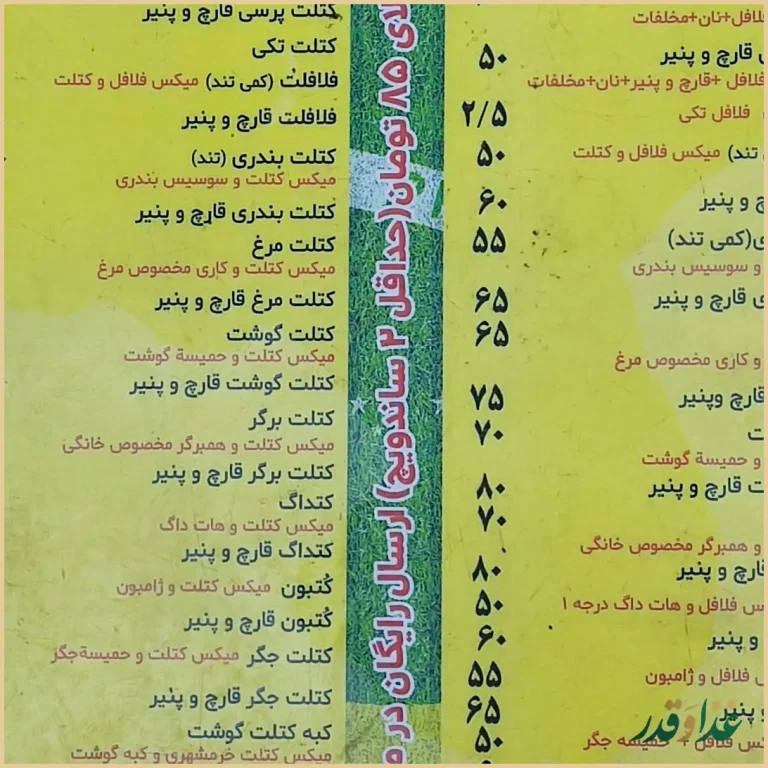 فلافل+نان+مخلفات
قارچ و پنیر ۵۰
فلافل +قارچ و پنیر+نان+مخلفات
فلافل تکی ۲/۵
تند) میکس فلافل و کتلت ۵۰
و پنیر ۶۰
(کمی تند) ۵۵
و سوسیس بندری
قارچ و پنیر ۶۵
۶۵
و کاری مخصوص مرغ
قارچ وپنیر ۷۵
۷۰
و حمیسة گوشت
قارچ و پنیر ۸۰
۷۰
و همبرگر مخصوص خانگی
قارچ و پنیر ۸۰
فلافل و هات داگ درجه ۱ ۵۰
و پنیر ۶۰
فلافل و ژامبون ۵۵
و پنیر ۶۵
فلافل + حمیسه جگر ۵۰
۸۵ تومان(حداقل ۲ ساندویچ) ارسال رایگان در
کتلت پرسی قارچ و پنیر
کتلت تکی
فلافلت (کمی تند) میکس فلافل و کتلت
فلافلت قارچ و پنیر
کتلت بندری (تند)
میکس کتلت و سوسیس بندری
کتلت بندری قارچ و پنیر
کتلت مرغ
میکس کتلت و کاری مخصوص مرغ
کتلت مرغ قارچ و پنیر
کتلت گوشت
میکس کتلت و حمیسة گوشت
کتلت گوشت قارچ و پنیر
کتلت برگر
میکس کتلت و همبرگر مخصوص خانگی
کتلت برگر قارچ و پنیر
کتداگ
میکس کتلت و هات داگ
کتداگ قارچ و پنیر
کُتبون میکس کتلت و ژامبون
کُتبون قارچ و پنیر
کتلت جگر میکس کتلت و حمیسةجگر
کتلت جگر قارچ و پنیر
کبه کتلت گوشت
میکس کتلت خرمشهری و کبه گوشت
غذا و قدر